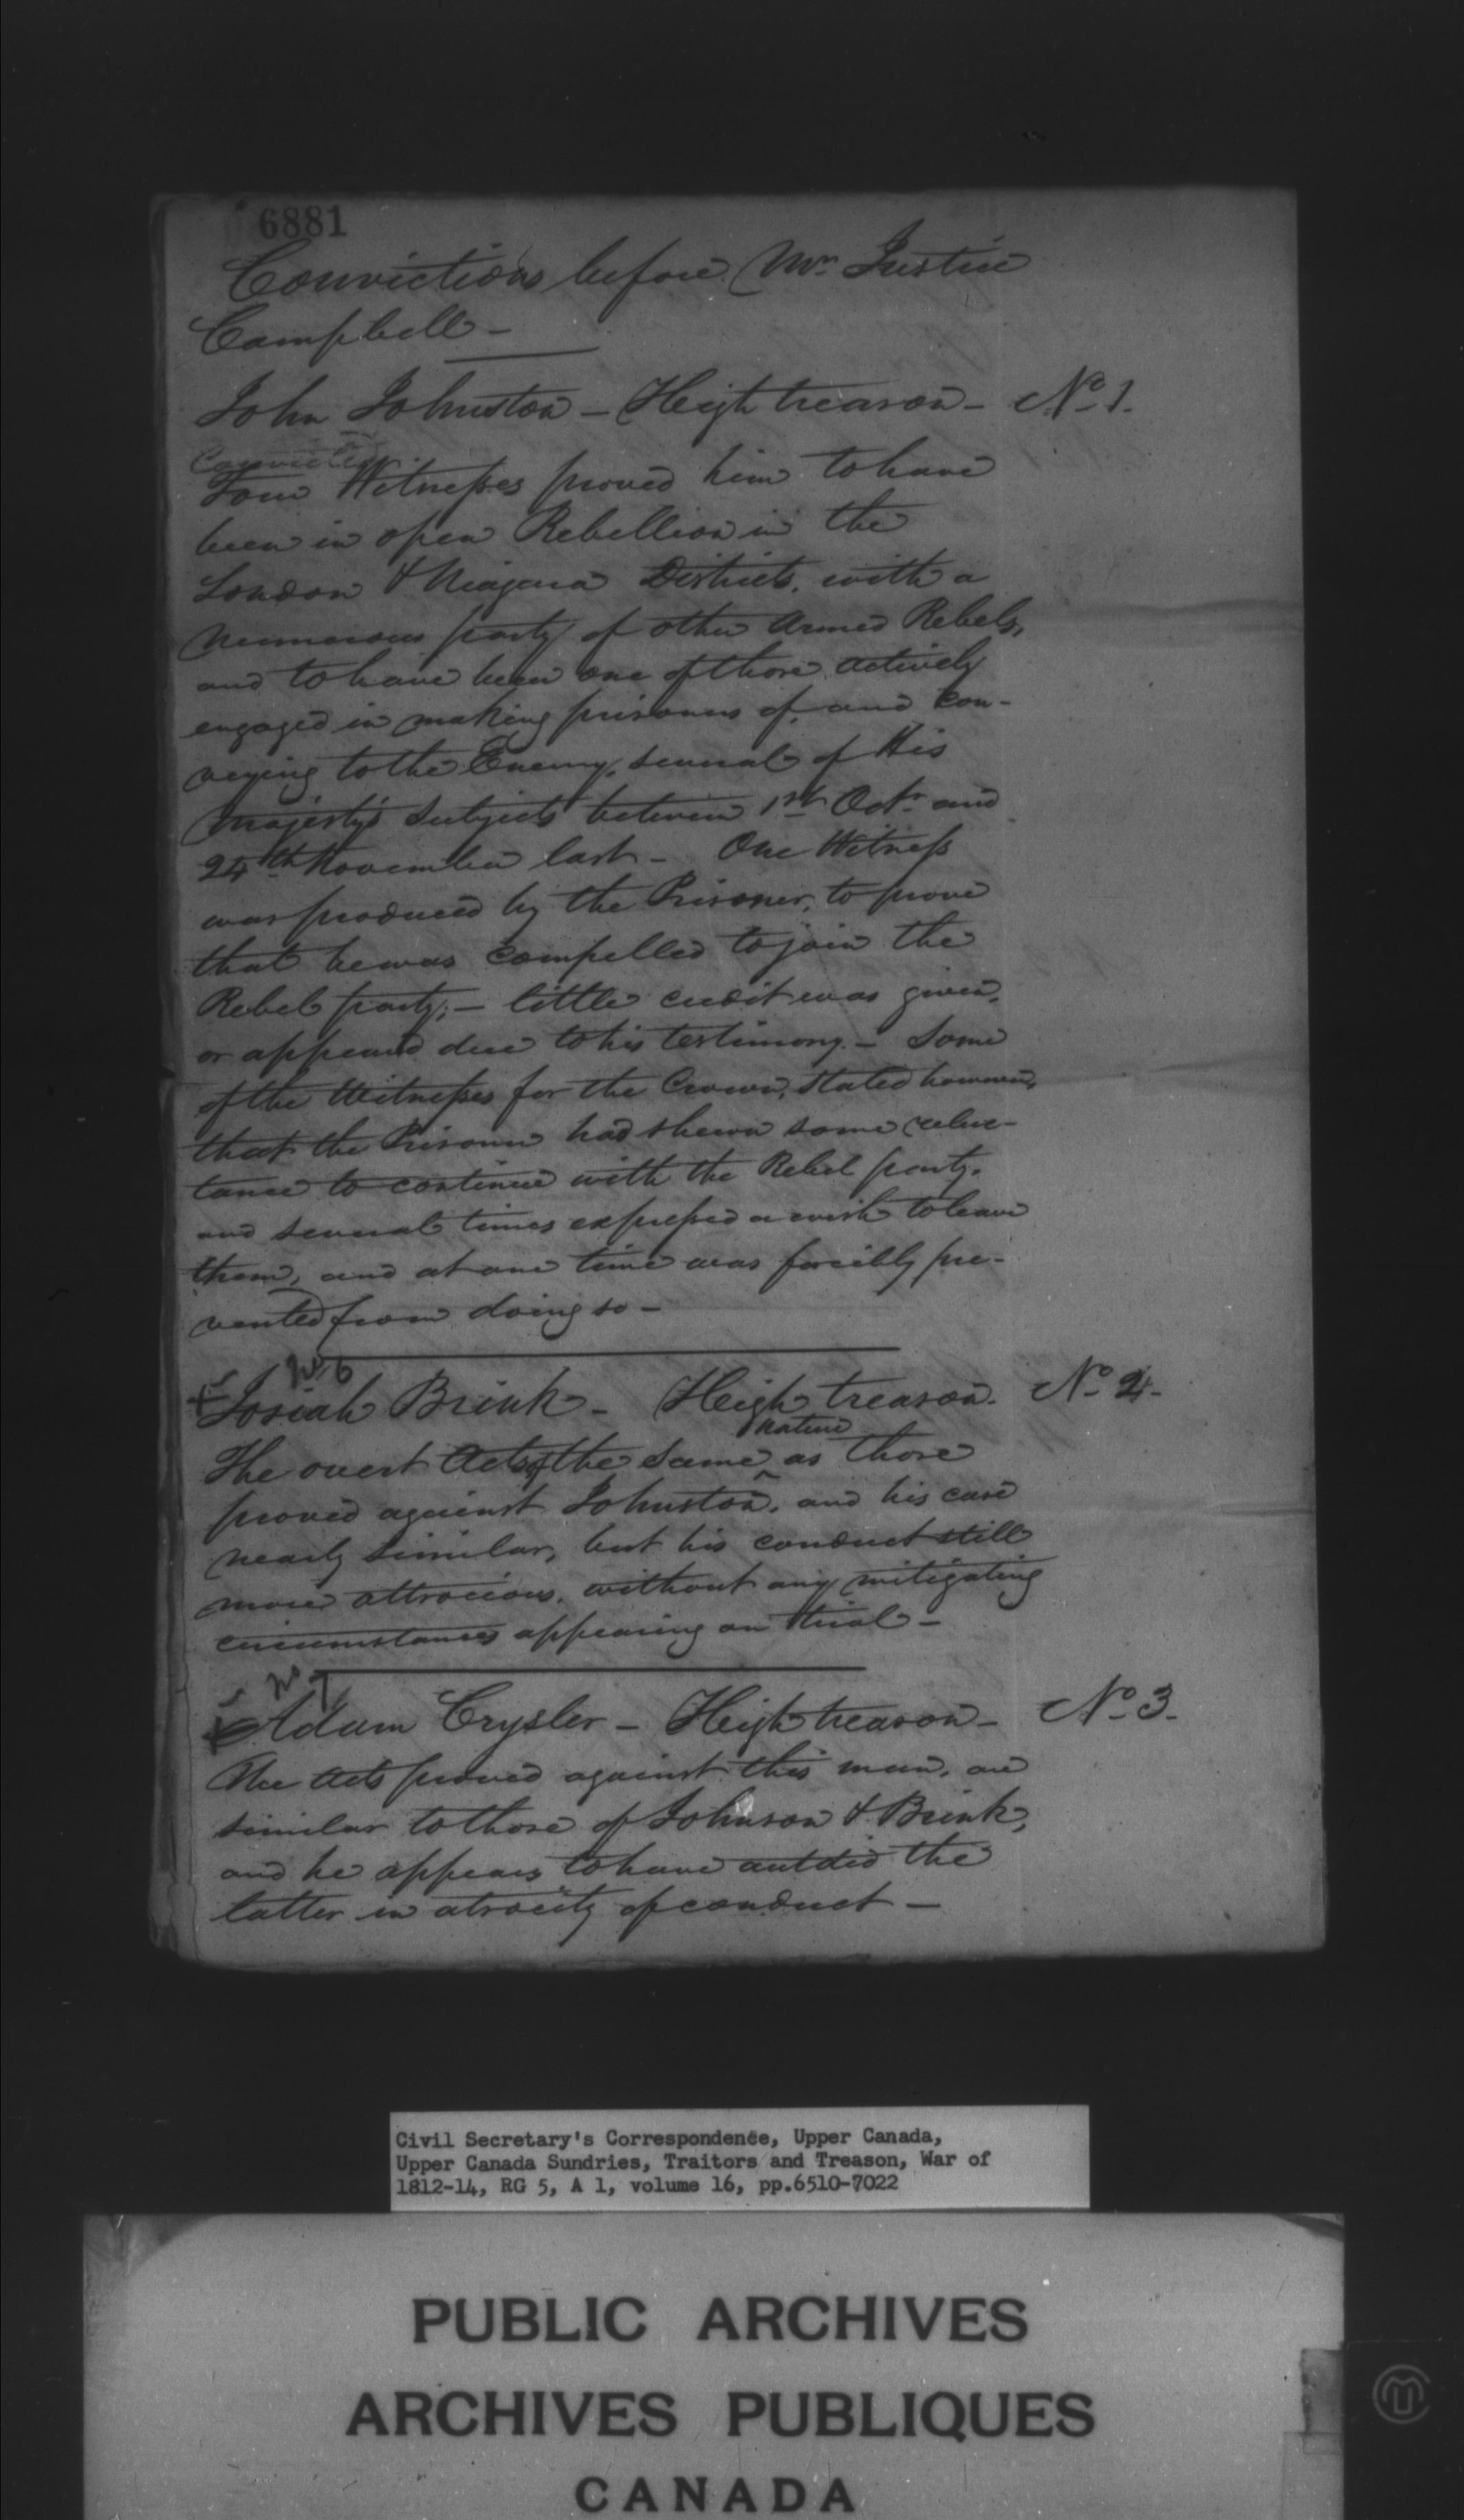 6881
Convictions before Mr. Justice
Campbell -
John Johnston - High treason - No. 1.
Convicted
Four Witnesses proved him to have
been in open Rebellion in the
London & Niagara Districts, with a
numerous party of other Armed Rebels,
and to have been one of those actively
engaged in making prisoners of, and con-
veying to the Enemy, several of His
Majesty's Subjects between 1st Octr. and
24th November last - One Witness
was produced by the Prisoner, to prove
that he was compelled to join the
Rebel party; - little credit was given,
or appeared due to his testimony. - Some
of the Witnesses for the Crown, stated however,
that the Prisoner had shewn some reluc-
tance to continue with the Rebel party,
and several times expressed a wish to leave
them, and at one time was forcibly pre-
vented from doing so -
No 6
Josiah Brink - High treason. No. 2.
nature
The overt Acts of the same as those
proved against Johnston, and his case
nearly similar, but his conduct still
more attrocious, without any mitigating
circumstances appearing on trial -
No 7
Adam Crysler - High treason - No. 3.
The Acts proved against this man, are
similar to those of Johnson & Brink,
and he appears to have outdid the
latter in atrocity of conduct -
Civil Secretary's Correspondence, Upper Canada,
Upper Canada Sundries, Traitors and Treason, War of
1812-14, RG 5, A 1, volume 16, pp.6510-7022
PUBLIC ARCHIVES
ARCHIVES PUBLIQUES
CANADA